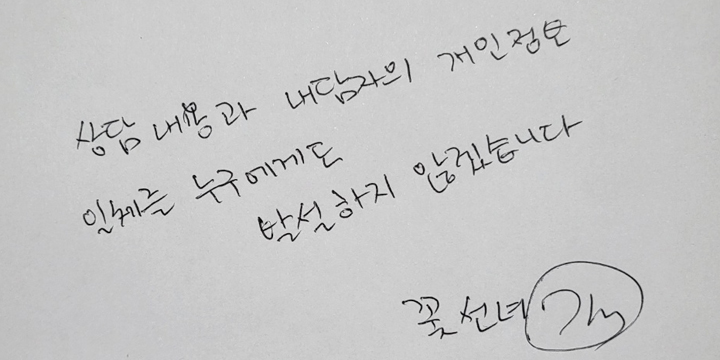 상담 내용과 내담자의 개인정보
일체를 누구에게도
발설하지 않겠습니다
꽃선녀